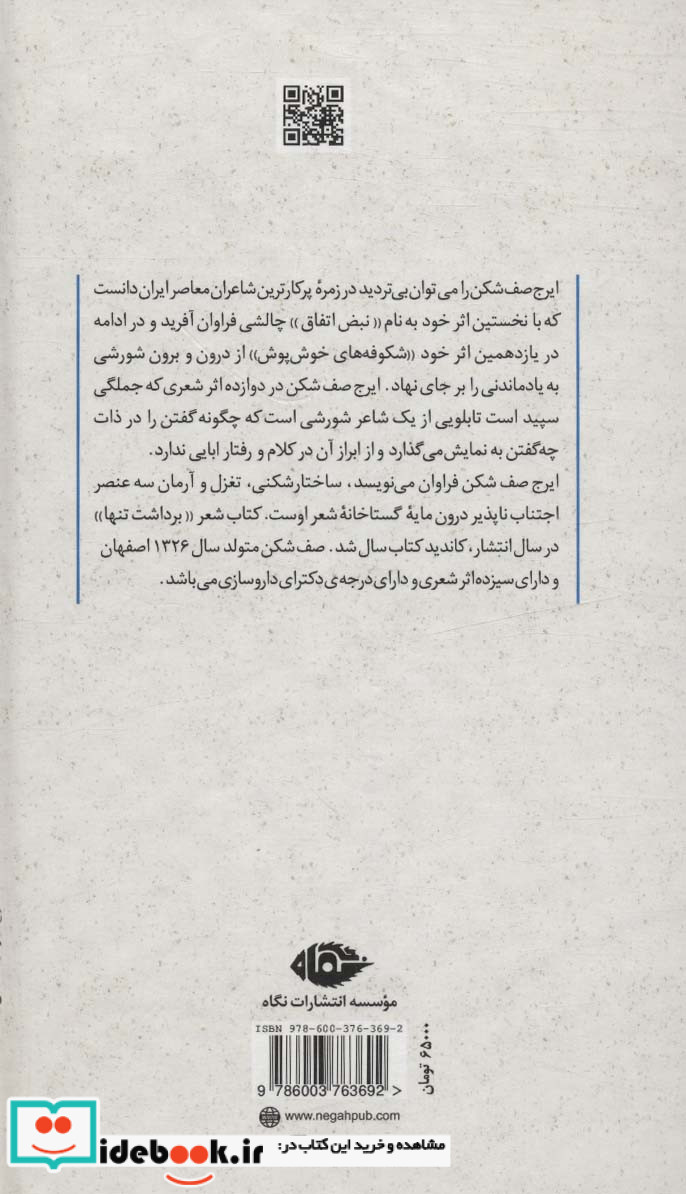 ایرج صف شکن را می توان بی تردید در زمرهٔ پرکارترین شاعران معاصر ایران دانست
که با نخستین اثر خود به نام «نبض اتفاق» چالشی فراوان آفرید و در ادامه
در یازدهمین اثر خود «شکوفه‌های خوش‌پوش» از درون و برون شورشی
به یادماندنی را بر جای نهاد. ایرج صف شکن در دوازده اثر شعری که جملگی
سپید است تابلویی از یک شاعر شورشی است که چگونه گفتن را در ذات
چه‌گفتن به نمایش می‌گذارد و از ابراز آن در کلام و رفتار ابایی ندارد.
ایرج صف شکن فراوان می‌نویسد، ساختارشکنی، تغزل و آرمان سه عنصر
اجتناب ناپذیر درون مایهٔ گستاخانهٔ شعر اوست. کتاب شعر «برداشت تنها»
در سال انتشار، کاندید کتاب سال شد. صف شکن متولد سال ۱۳۲۶ اصفهان
و دارای سیزده اثر شعری و دارای درجه‌ی دکترای داروسازی می‌باشد.
نگاه
مؤسسه انتشارات نگاه
ISBN 978-600-376-369-2
9 786003 763692 >
۶۵۰۰۰ تومان
www.negahpub.com
مشاهده و خرید این کتاب در:
idebook.ir